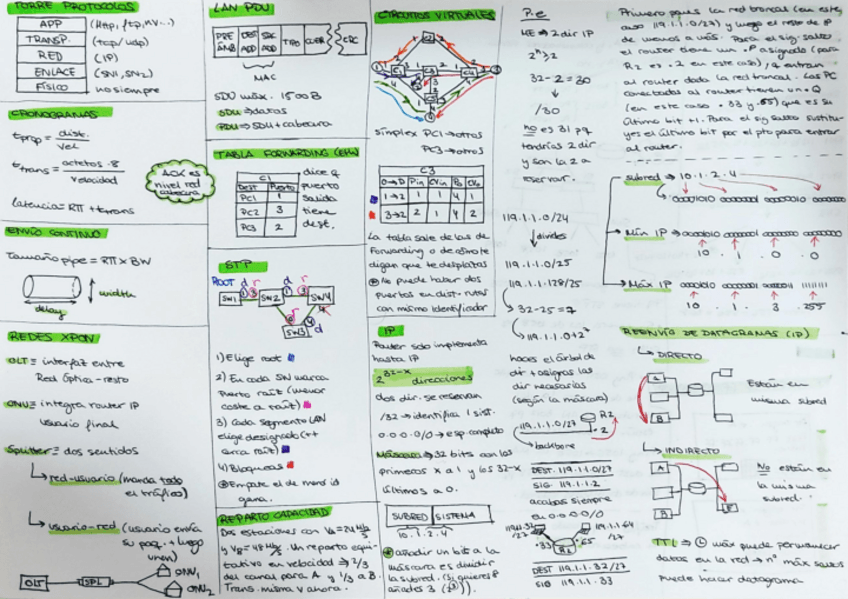 TORRE PROTOCOLOS
APP (http, ftp, nv...)
TRANSP. (tcp/udp)
RED (IP)
ENLACE (SN1, SN2)
FÍSICO no siempre
CRONOGRAMAS
tprop = dist. / vel
ttrans = octetos . 8 / velocidad
ACK es
nivel red
cabecera
latencia = RTT + ttrans
ENVÍO CONTINUO
Tamaño pipe = RTT x BW
width
delay
REDES XPON
OLT = interfaz entre
Red óptica - resto
ONU = integra router IP
usuario final
Splitter = dos sentidos
red-usuario (manda todo
el tráfico)
usuario-red (usuario envía
su paq. + luego
unen)
OLT SPL ONU1
ONU2
LAN PDU
PRE AMB DEST ADD SRC ADD TIPO CUER CRC
MAC
SDU máx. 1500B
SDU ⇒ datos
PDU ⇒ SDU + cabecera
TABLA FORWARDING (ETH)
C1
DEST Puerto
PC1 1
PC2 3
PC3 2
dice q
puerto
salida
tiene
dest.
STP
ROOT d r d r
SW1 SW2 SW4
SW3 d
1) Elige root
2) En cada SW marca
Puerto raíz (menor
coste a raíz)
3) Cada segmento LAN
elige designado (++
cerca raíz)
4) Bloqueas
Empate el de menor id
gana.
REPARTO CAPACIDAD
Dos estaciones con VA = 24 Mb/s
y VB = 48 Mb/s. Un reparto equi-
tativo en velocidad ⇒ 2/3
del canal para A y 1/3 a B.
Trans. misma v ahora.
CIRCUITOS VIRTUALES
simplex PC1 → otros
PC3 → otros
C3
O→D Pin CVin Po CVo
1→2 1 1 4 1
3→2 2 1 4 2
La tabla sale de las de
Forwarding o de cómo te
digan que te desplazas
No puede haber dos
puertos en dist. rutas
con mismo identificador
IP
Router solo implementa
hasta IP
2^32-x direcciones
dos dir. se reservan
/32 → identifica 1 sist.
0.0.0.0/0 → esp. completo
Máscara ⇒ 32 bits con los
primeros x a 1 y los 32-x
últimos a 0.
SUBRED SISTEMA
10.1.2.4
añadir un bit a la
máscara es dividir
la subred. (Si quieres 8
añades 3 (2^3)).
P.e
ME ⇒ 2 dir IP
32-2 = 30
/30
no es 31 pq
tendrías 2 dir
y son la 2 a
reservar.
119.1.1.0/24
divides
119.1.1.0/25
119.1.1.128/25
32-25 = 7
119.1.1.0+2^7
haces el árbol de
dir + asignas las
dir necesarias
(según la máscara)
R2
119.1.1.0/27 .2
backbone
DEST. 119.1.1.0/27
SIG 119.1.1.2
acabas siempre
en 0.0.0.0/0
119.1.1.32
/27
119.1.1.64
/27
.33 .65
R2
DEST 119.1.1.32/27
SIG 119.1.1.33
Primero pones la red troncal (en este
caso 119.1.1.0/27) y luego el resto de IP
de menos a más. Para el sig. salto
el router tiene un .P asignado (para
R2 es .2 en este caso), q entran
al router dada la red troncal. Las PC
conectadas al router tienen un .Q
(en este caso .33 y .65) que es su
último bit +1. Para el sig salto sustitu-
yes el último bit por el pto para entrar
al router.
subred → 10.1.2.4
00001010 00000001 00000010 00000000
Mín IP → 00001010 00000001 00000000 00000000
10 . 1 . 0 . 0
Máx IP 00001010 00000001 00000011 11111111
10 . 1 . 3 . 255
REENVÍO DE DATAGRAMAS (IP)
DIRECTO
A
B
Están en
misma subred
INDIRECTO
A
B
No están en
la misma
subred.
TTL ⇒ máx puede permanecer
datos en la red → nº máx saltos
puede hacer datagrama